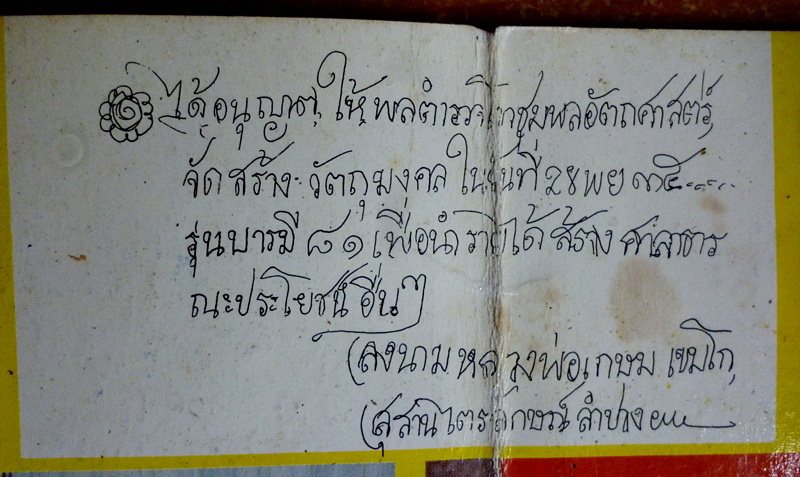 ได้อนุญาต ให้ พลตำรวจ ชุมพล อัตถศาสตร์
จัดสร้าง วัตถุมงคล ในวันที่ ๒๘ พย ๓๕
รุ่นบารมี ๘๑ เพื่อนำรายได้ สร้าง ศาลา
ณะประโยชน์ อื่นๆ
(ลงนาม หลวงพ่อเกษม เขมโก
(สุสานไตรลักษณ์ ลำปาง